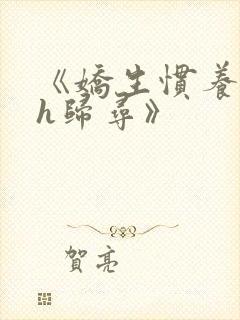 《嬌生慣養
h歸尋》
賀亮